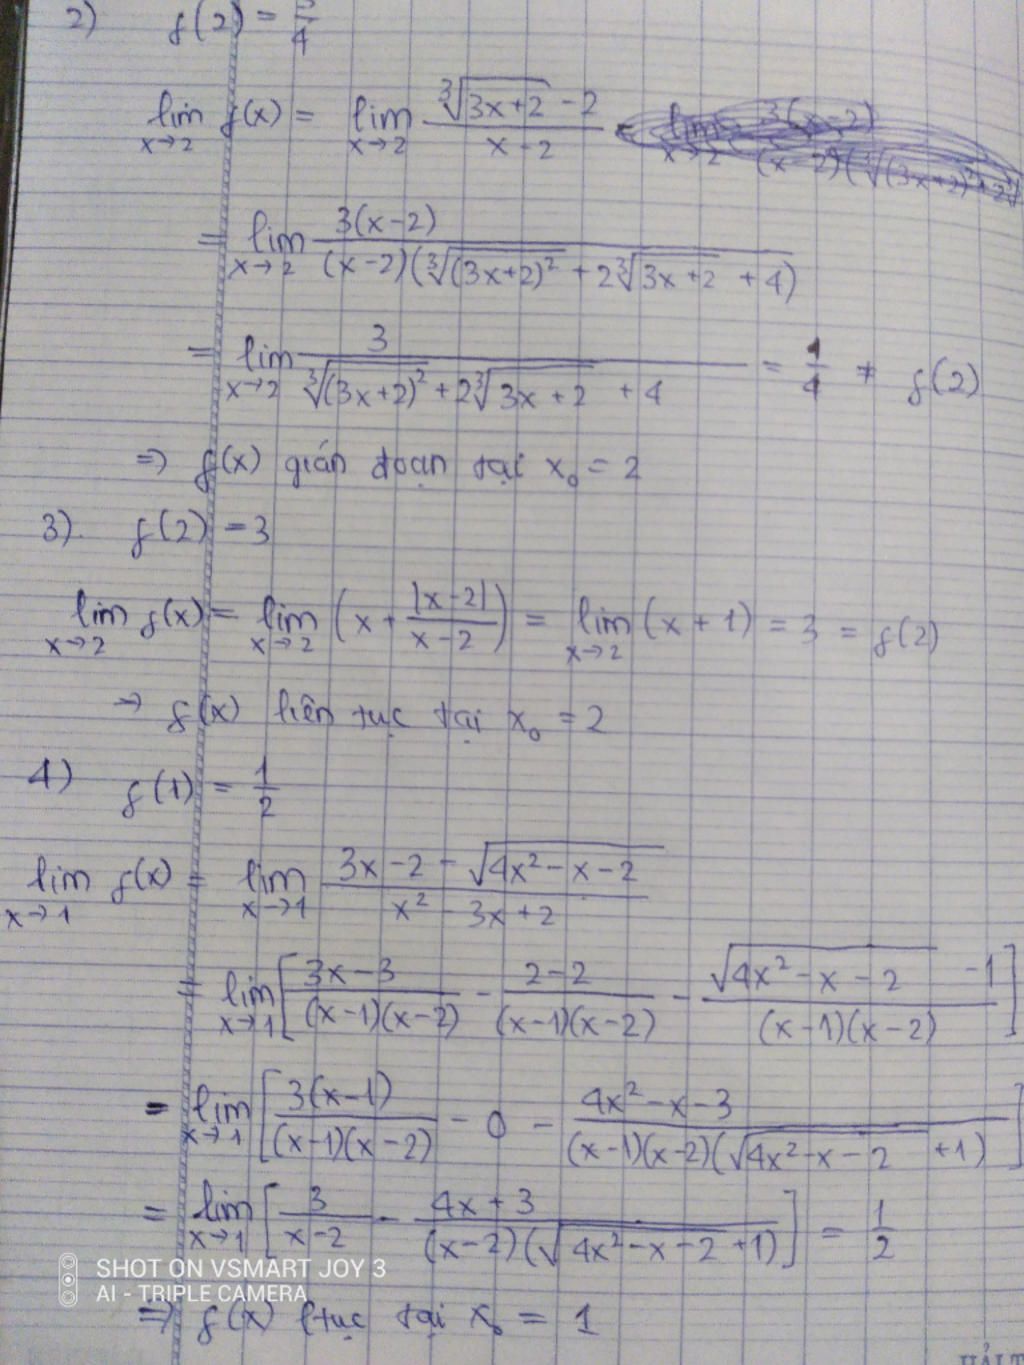 2) f(2) = 3/4
lim x→2 f(x) = lim x→2 (∛(3x+2) - 2)/(x - 2)
= lim x→2 3(x-2)/((x-2)(∛((3x+2)²) + 2∛(3x+2) + 4))
= lim x→2 3/(∛((3x+2)²) + 2∛(3x+2) + 4) = 1/4 ≠ f(2)
⇒ f(x) gián đoạn tại x₀ = 2
3). f(2) = 3
lim x→2 f(x) = lim x→2 (x + |x-2|/(x-2)) = lim x→2 (x+1) = 3 = f(2)
→ f(x) liên tục tại x₀ = 2
4) f(1) = 1/2
lim x→1 f(x) = lim x→1 (3x - 2 - √(4x² - x - 2))/(x² - 3x + 2)
= lim x→1 [(3x-3)/((x-1)(x-2)) - (2-2)/((x-1)(x-2)) - (√(4x² - x - 2) - 1)/((x-1)(x-2))]
= lim x→1 [3(x-1)/((x-1)(x-2)) - 0 - (4x² - x - 3)/((x-1)(x-2)(√(4x² - x - 2) + 1))]
= lim x→1 [3/(x-2) - (4x+3)/((x-2)(√(4x² - x - 2) + 1))] = 1/2
SHOT ON VSMART JOY 3
AI - TRIPLE CAMERA
⇒ f(x) ltục tại x₀ = 1